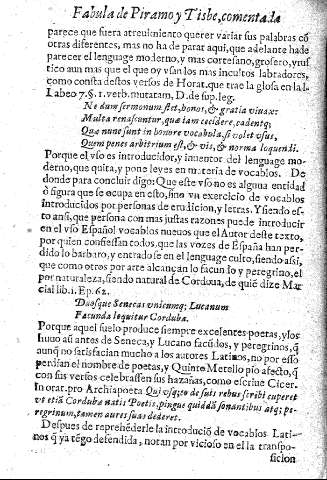 Fabula de Piramo y Tisbe, comentada
parece que fuera atreuimiento querer variar sus palabras cõ
otras diferentes, mas no ha de parar aqui, que adelante hade
parecer el lenguage moderno, y mas cortesano, grosero, y rus
tico aun mas que el que oy vsan los mas incultos labradores,
como consta destos versos de Horat. que trae la glosa en la l.
Labeo 7. §. 1. verb. mutatam, D. de sup. leg.
Ne dum sermonum stet, honos, & gratia viuax:
Multa renascuntur, quæ iam cecidere, cadentq;
Quæ nunc sunt in honore vocabula, si volet vsus,
Quem penes arbitrium est, & vis, & norma loquendi.
Porque el vso es introducidor, y inuentor del lenguage mo-
derno, que quita, y pone leyes en materia de vocablos. De
donde para concluir digo: Que este vso no es alguna entidad
ò figura que se ocupa en esto, sino vn exercicio de vocablos
introducidos por personas de erudicion, y letras. Y siendo es-
to ansi, que persona con mas justas razones puede introducir
en el vso Español vocablos nueuos que el Autor deste texto,
por quien confiessan todos, que las vozes de España han per-
dido lo barbaro, y entrado se en el lenguage culto, siendo assi,
que como otros por arte alcançan lo facundo y peregrino, el
por naturaleza, siendo natural de Cordoua, de quiẽ dize Mar
cial lib. 1. Ep. 62.
Duosque Senecas vnicumq; Lucanum
Facunda loquitur Corduba.
Porque aquel suelo produce siempre excelentes poetas, y los
huuo aũ antes de Seneca, y Lucano facũdos, y peregrinos, q̃
aunq̃ no satisfacian mucho a los autores Latinos, no por esso
perdian el nombre de poetas, y Quinto Metello pio afecto, q̃
con sus versos celebrassen sus hazañas, como escriue Cicer.
In orat. pro Archia poeta Qui vsq; eo de suis rebus scribi cuperet
vt etiã Cordubæ natis Poetis, pingue quiddã sonantibus atq; pe-
regrinum, tamen aures suas dederet.
Despues de reprehẽderle la introduciõ de vocablos Lati-
nos q̃ ya tẽgo defendida, notan por vicioso en el la transpo-
sicion